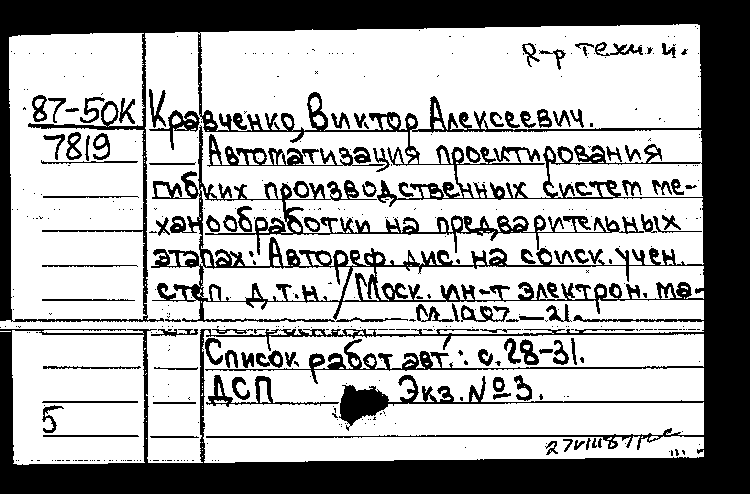 д-р техн. н.
87-50К Кравченко, Виктор Алексеевич.
7819 Автоматизация проектирования
гибких производственных систем ме-
ханообработки на предварительных
этапах: Автореф. дис. на соиск. учен.
степ. д.т.н. / Моск. ин-т электрон. ма-
Список работ авт.: с. 28-31.
ДСП Экз. № 3.
5